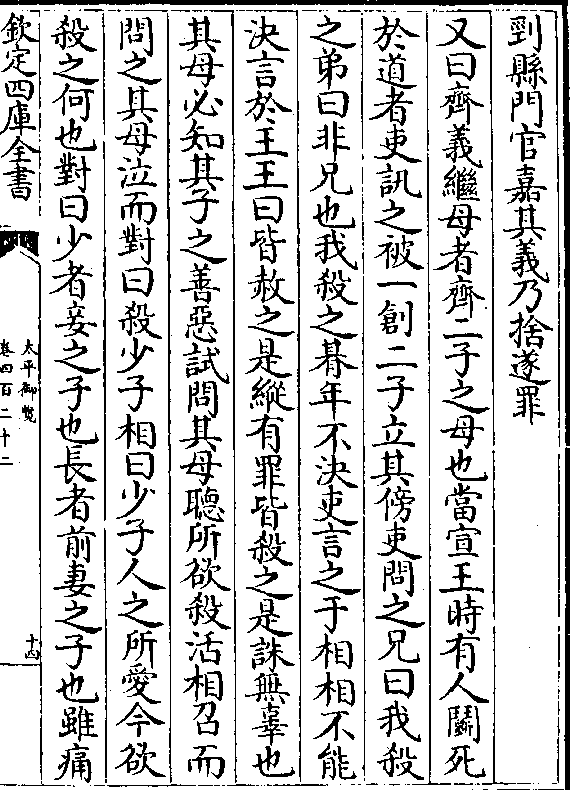 剄縣門官嘉其義乃捨遂罪
又曰齊義繼母者齊二子之母也當宣王時有人鬭死
於道者吏訊之被一創二子立其傍吏問之兄曰我殺
之弟曰非兄也我殺之朞年不決吏言之于相相不能
決言於王王曰皆赦之是縱有罪皆殺之是誅無辜也
其母必知其子之善惡試問其母聽所欲殺活相召而
問之其母泣而對曰殺少子相曰少子人之所愛今欲
殺之何也對曰少者妾之子也長者前妻之子也雖痛
欽定四庫全書
太平御覽
卷四百二十二
十四